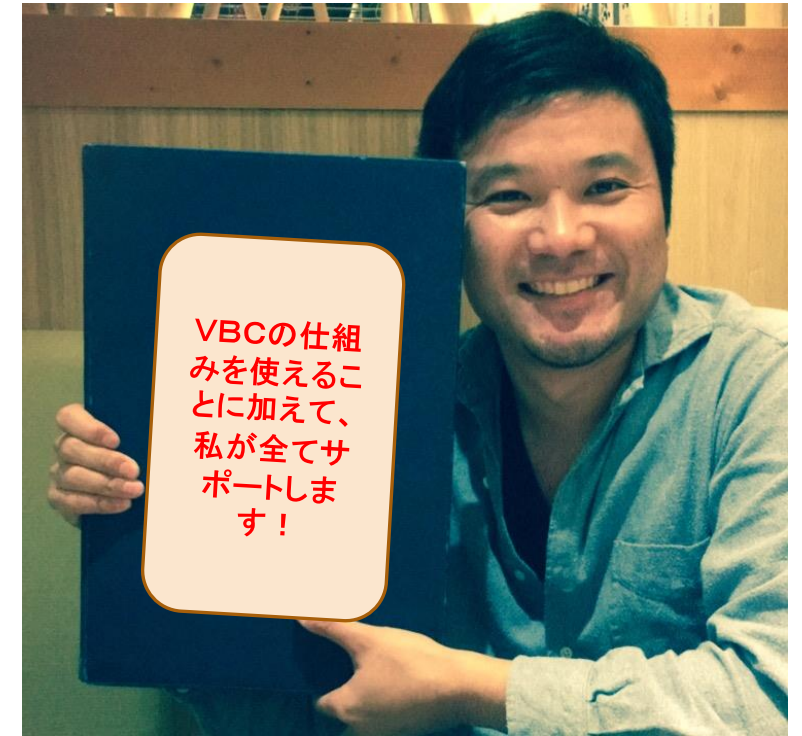 VBCの仕組
みを使えるこ
とに加えて、
私が全てサ
ポートしま
す！